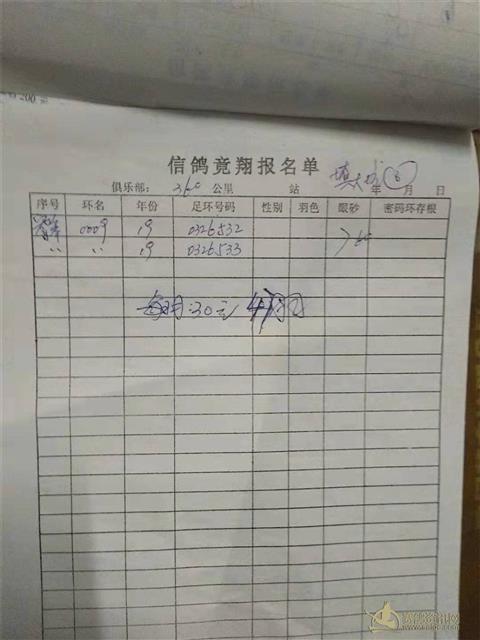 信鸽竟翔报名单
俱乐部: 360 公里 站 年 月 日
序号 环名 年份 足环号码 性别 羽色 眼砂 密码环存根
0009 19 0326532
〃 〃 19 0326533
60
每羽30元